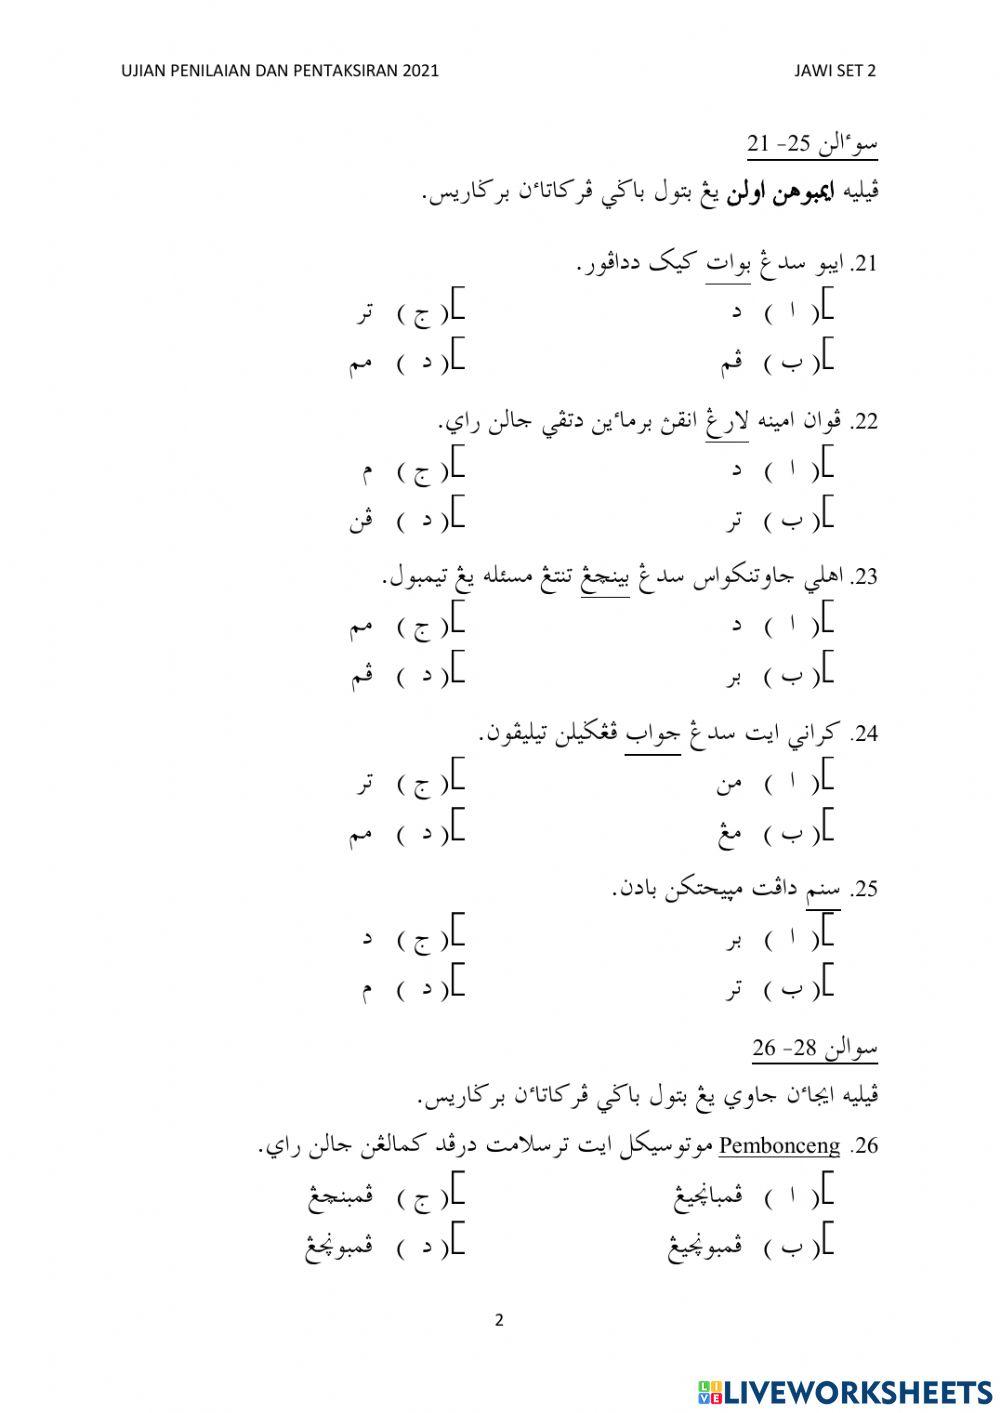 UJIAN PENILAIAN DAN PENTAKSIRAN 2021 JAWI SET 2
سوءالن 25- 21
ڤيليه ايمبوهن اولن يڠ بتول باݢي ڤرکاتاءن برݢاريس.
21. ايبو سدڠ بوات کيک دداڤور.
[( ا ) د [( ج ) تر
[( ب ) ڤم [( د ) مم
22. ڤوان امينه لارڠ انقڽ برماءين دتڤي جالن راي.
[( ا ) د [( ج ) م
[( ب ) تر [( د ) ڤن
23. اهلي جاوتنکواس سدڠ بينچڠ تنتڠ مسئله يڠ تيمبول.
[( ا ) د [( ج ) مم
[( ب ) بر [( د ) ڤم
24. کراني ايت سدڠ جواب ڤڠݢيلن تيليڤون.
[( ا ) من [( ج ) تر
[( ب ) مڠ [( د ) مم
25. سنم داڤت مڽيحتکن بادن.
[( ا ) بر [( ج ) د
[( ب ) تر [( د ) م
سوالن 28- 26
ڤيليه ايجاءن جاوي يڠ بتول باݢي ڤرکاتاءن برݢاريس.
26. Pembonceng موتوسيکل ايت ترسلامت درڤد کمالڠن جالن راي.
[( ا ) ڤمبانچيڠ [( ج ) ڤمبنچڠ
[( ب ) ڤمبونچيڠ [( د ) ڤمبونچڠ
2
LIVE LIVEWORKSHEETS